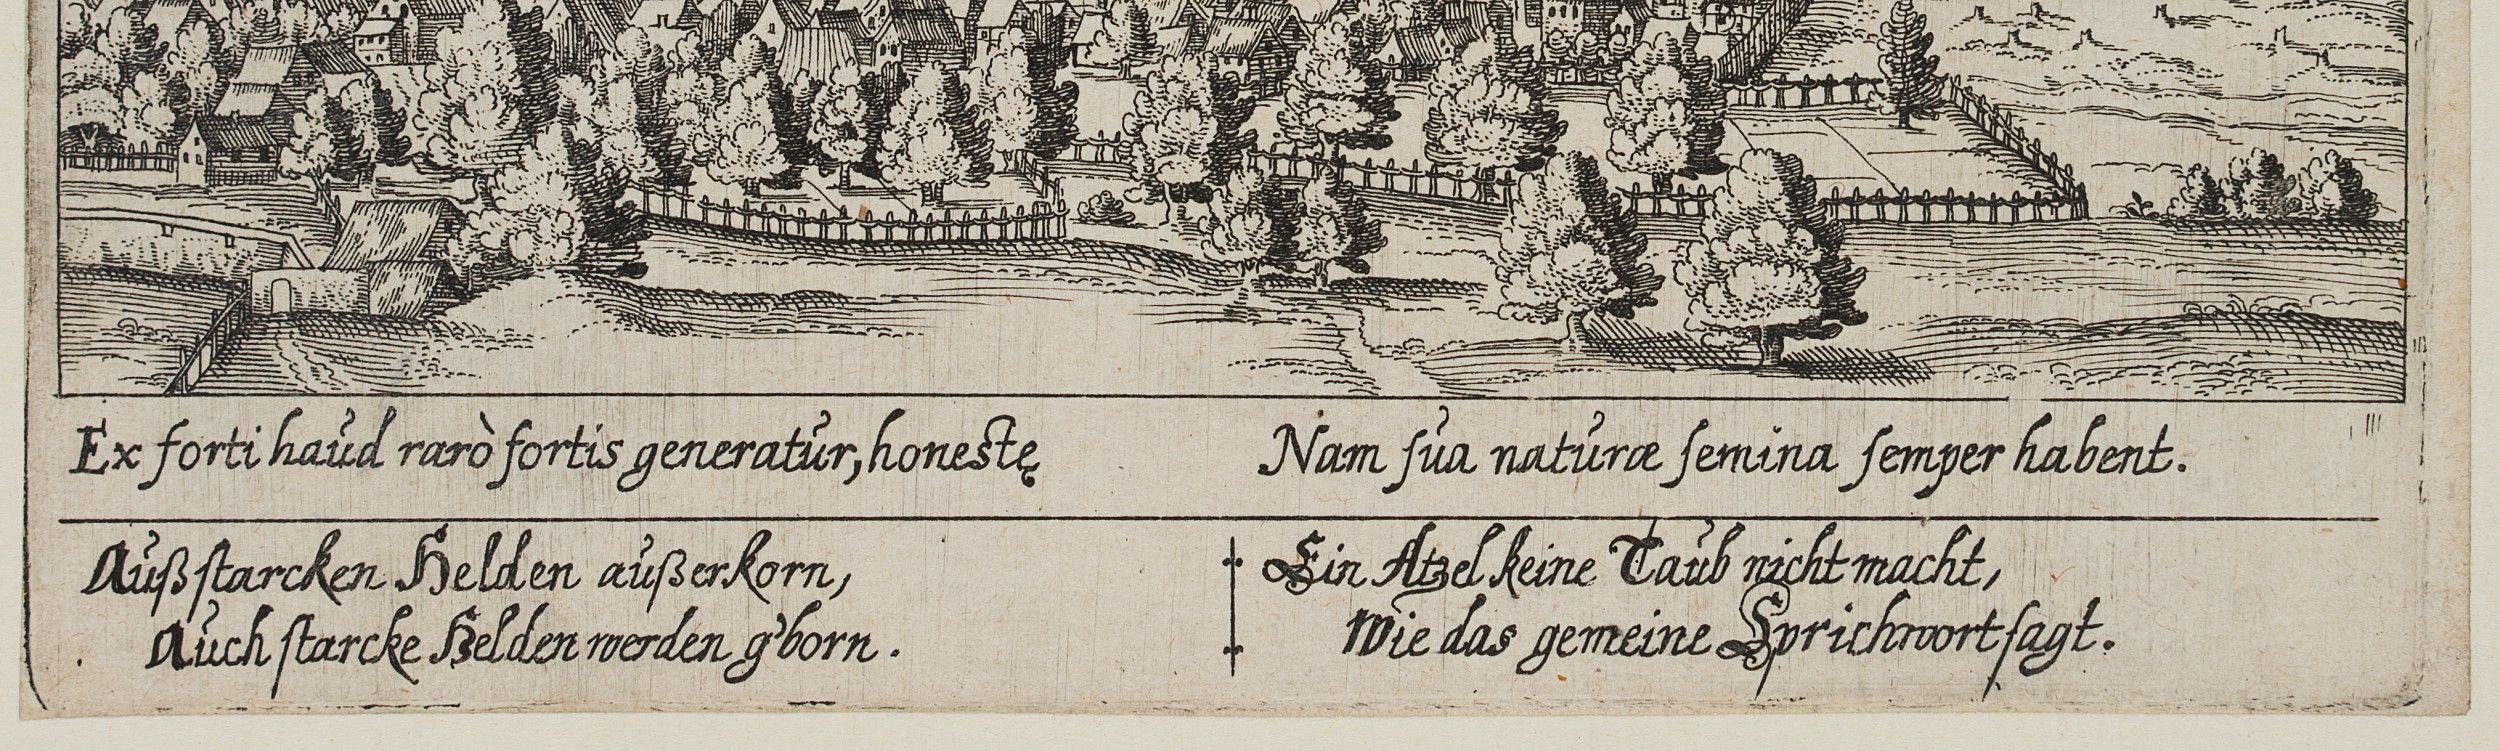 Ex forti haud rarò fortis generatur, honestę
Nam ſua naturæ ſemina ſemper habent.
Auß ſtarcken Helden außerkorn,
Auch ſtarcke Helden werden g'born.
Ein Atzel keine Taub nicht macht,
Wie das gemeine Sprichwort ſagt.